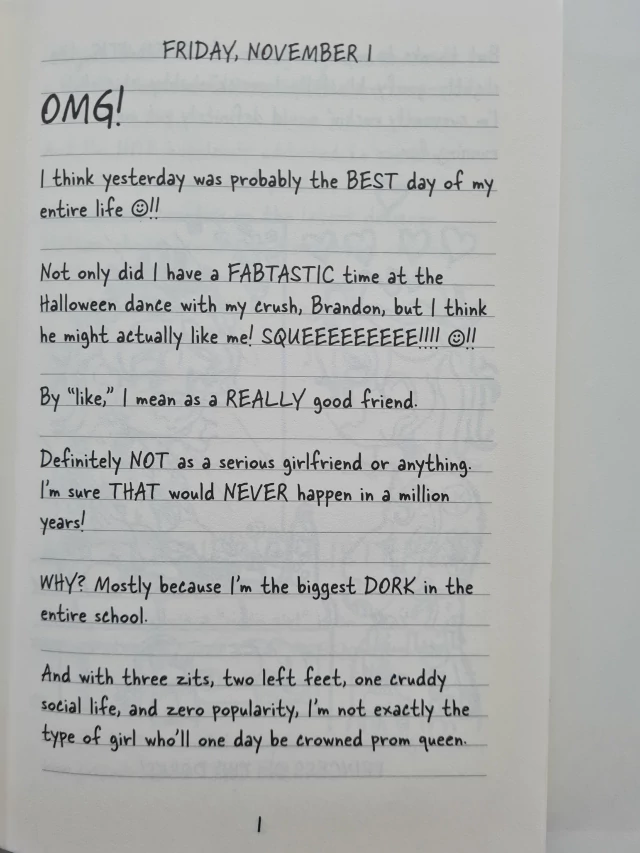 FRIDAY, NOVEMBER 1
OMG!
I think yesterday was probably the BEST day of my
entire life ☺!!
Not only did I have a FABTASTIC time at the
Halloween dance with my crush, Brandon, but I think
he might actually like me! SQUEEEEEEEEEE!!!! ☺!!
By “like,” I mean as a REALLY good friend.
Definitely NOT as a serious girlfriend or anything.
I'm sure THAT would NEVER happen in a million
years!
WHY? Mostly because I'm the biggest DORK in the
entire school.
And with three zits, two left feet, one cruddy
social life, and zero popularity, I'm not exactly the
type of girl who'll one day be crowned prom queen.
1